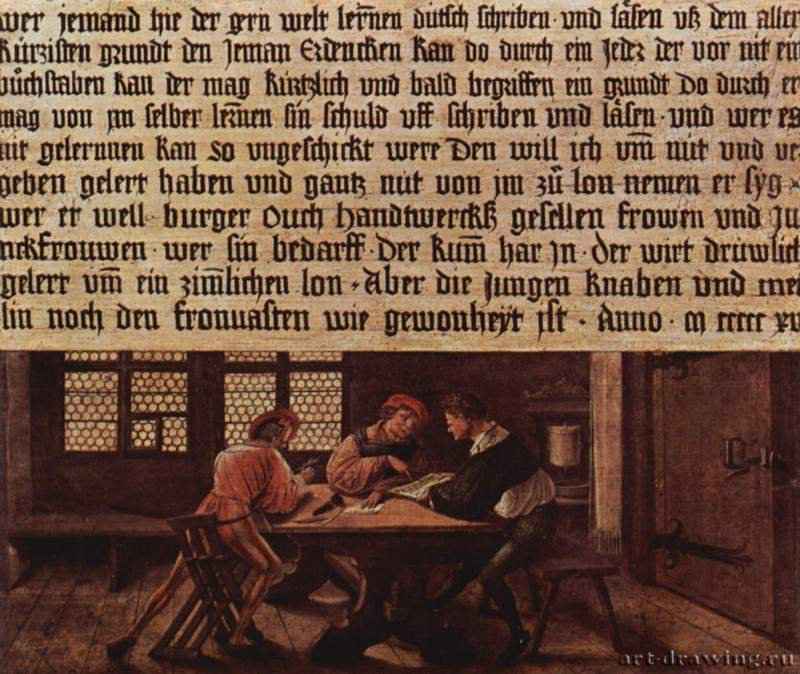 wer jemand hie der gern welt lernen dütsch schriben · vnd läsen vß dem aller
kürzisten grundt den Jeman Erdencken kan do durch ein jeder der vor nit ein
bůchstaben kan der mag kürtzlich vnd bald begriffen ein grundt do durch er
mag von jm selber lernen sin schuld vff schriben vnd läsen · vnd wer es
nit gelernnen kan so vngeschickt were Den will ich vm̄ nüt vnd ve
geben gelert haben vnd gantz nüt von jm zů lon nemen er syg
wer er well · burger Ouch handtwerckß gesellen frowen vnd Ju
nckfrouwen · wer sin bedarff · Der kum̄ har jn · der wirt drüwlich
gelert vm̄ ein zim̄lichen lon · Aber die jungen knaben vnd mei
lin noch den fronuasten wie gewonheyt jst · Anno · m ccccc xv
art-drawing.ru